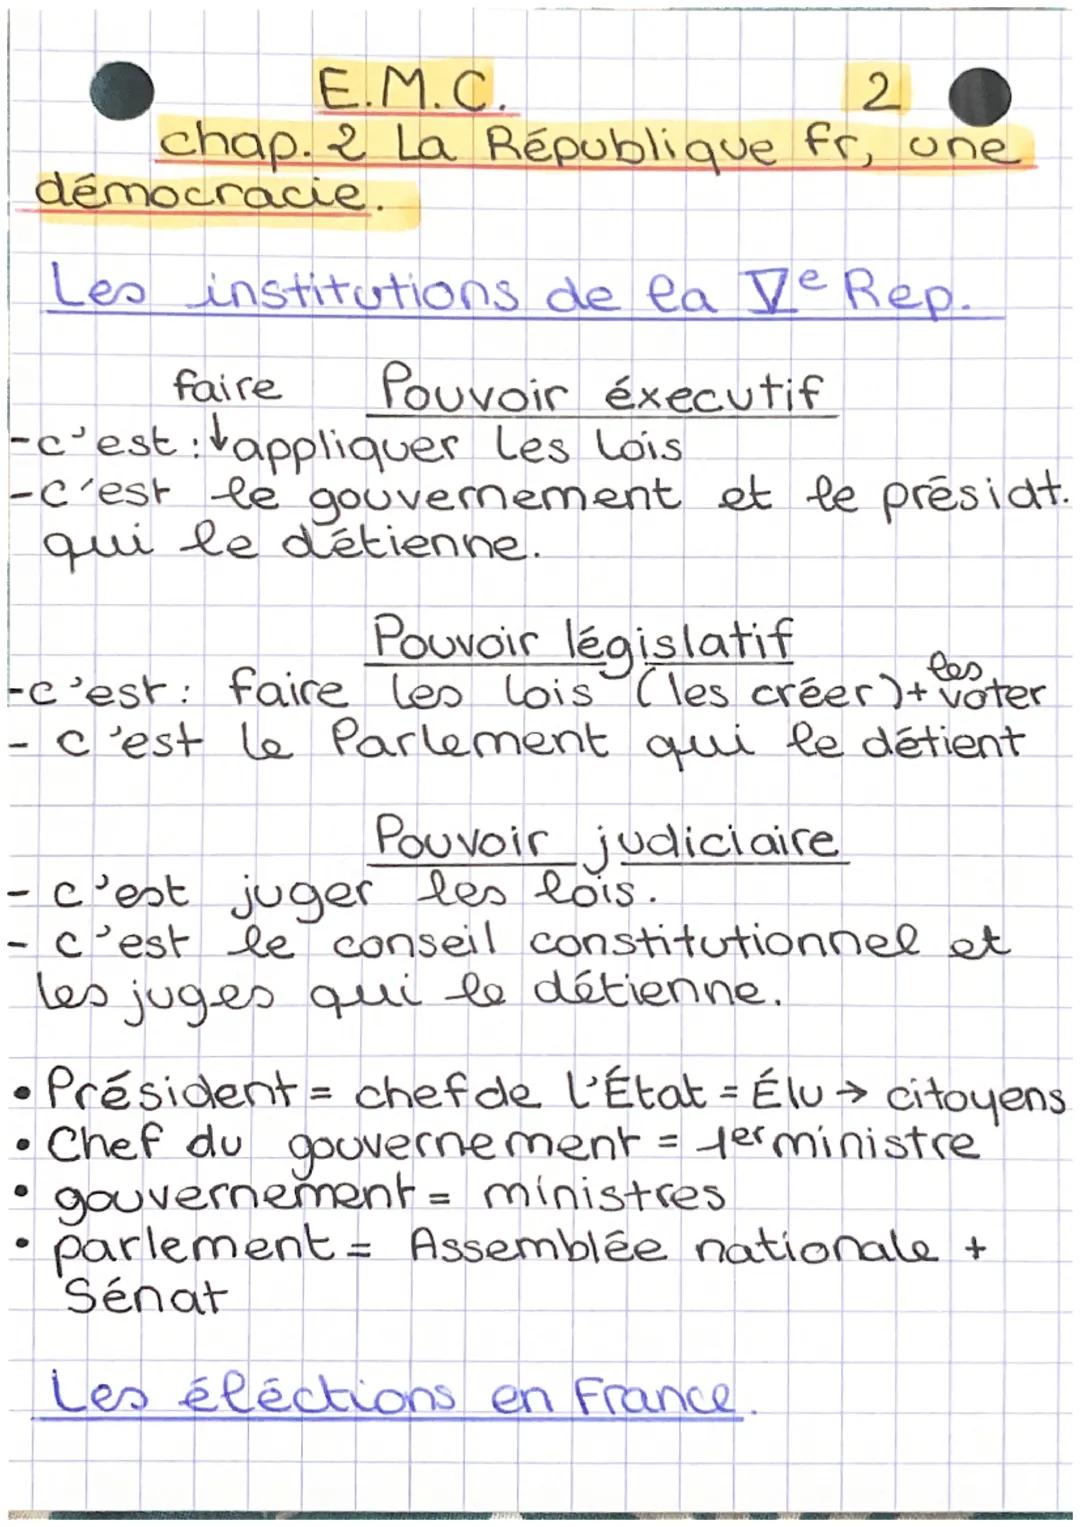 E.M.C. 2
chap. 2 La République fr, une
démocracie.
Les institutions de la Ve Rep.
faire Pouvoir éxecutif
-c'est : ↓appliquer les lois
-c'est le gouvernement et le présidt.
qui le détienne.
Pouvoir législatif
les
-c'est : faire les lois (les créer)+ voter
- c'est le Parlement qui le détient
Pouvoir judiciaire
- c'est juger les lois.
- c'est le conseil constitutionnel et
les juges qui le détienne.
• Président = chef de l'État = Élu → citoyens
• Chef du gouvernement = 1er ministre
• gouvernement = ministres
• parlement = Assemblée nationale +
Sénat
Les éléctions en France.